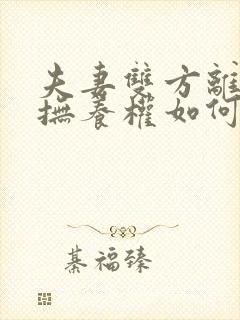 夫妻雙方離
撫養權如何
綦福臻